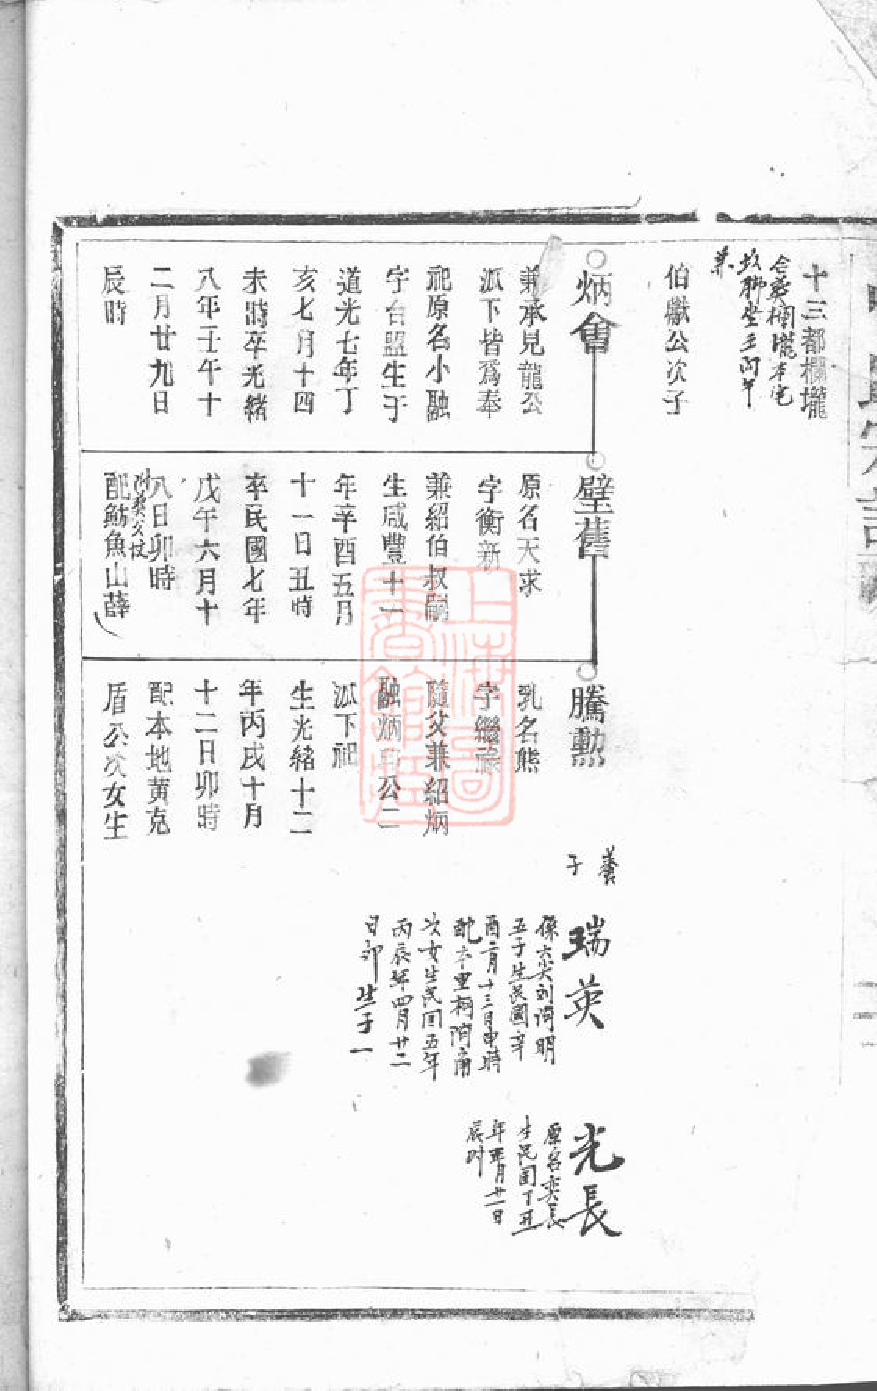 十三都欄壠
合葬欄壠本宅
坟聊坐壬向午
兼
伯獻公次子
炳會
兼承見龍公
派下皆為奉
祀原名小融
字台盟生于
道光七年丁
亥七月十四
未時卒光緒
八年壬午十
二月廿九日
辰時
壁舊
原名天求
字衡新
兼紹伯叔嗣
生咸豐十一
年辛酉五月
十一日丑時
卒民國七年
戊午六月十
八日卯時
配魴魚山薛
騰勲
乳名熊
字繼
隨父兼紹炳
融炳公二
派下祀
生光緒十二
年丙戌十月
十二日卯時
配本地黃克
盾公次女生
養子
瑞英
係六尖刘詩明
五子生民國辛
酉二月十三日申時
配本里楊
次女生民囯五年
丙辰年四月廿二
日卯生子一
光長
原名奕長
生民囯丁丑
年月廿一日
辰时
上海圖書館藏